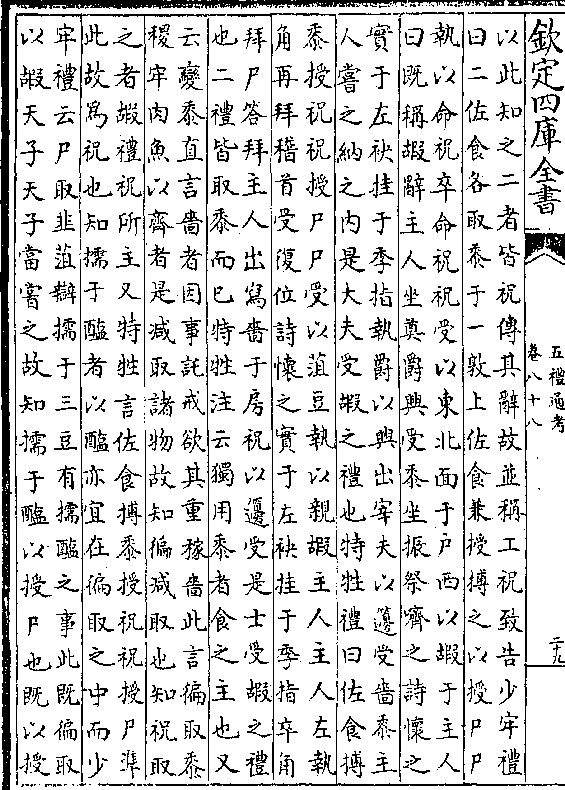 欽定四庫全書
五禮通考
卷八十八
二十九
以此知之二者皆祝傳其辭故並稱工祝致告少牢禮
曰二佐食各取黍于一敦上佐食兼授摶之以授尸尸
執以命祝卒命祝祝受以東北面于户西以嘏于主人
曰既稱嘏辭主人坐奠爵興受黍坐振祭嚌之詩懷之
實于左袂挂于季指執爵以興出宰夫以籩受嗇黍主
人嘗之納之内是大夫受嘏之禮也特牲禮曰佐食摶
黍授祝祝授尸尸受以菹豆執以親嘏主人主人左執
角再拜稽首受復位詩懷之實于左袂挂于季指卒角
拜尸答拜主人出寫嗇于房祝以籩受是士受嘏之禮
也二禮皆取黍而巳特牲注云獨用黍者食之主也又
云變黍直言嗇者因事託戒欲其重稼嗇此言徧取黍
稷牢肉魚以齊者是减取諸物故知徧减取也知祝取
之者嘏禮祝所主又特牲言佐食摶黍授祝祝授尸準
此故爲祝也知擩于醢者以醢亦宜在徧取之中而少
牢禮云尸取韭菹辯擩于三豆有擩醢之事此既徧取
以嘏天子天子當嘗之故知擩于醢以授尸也既以授